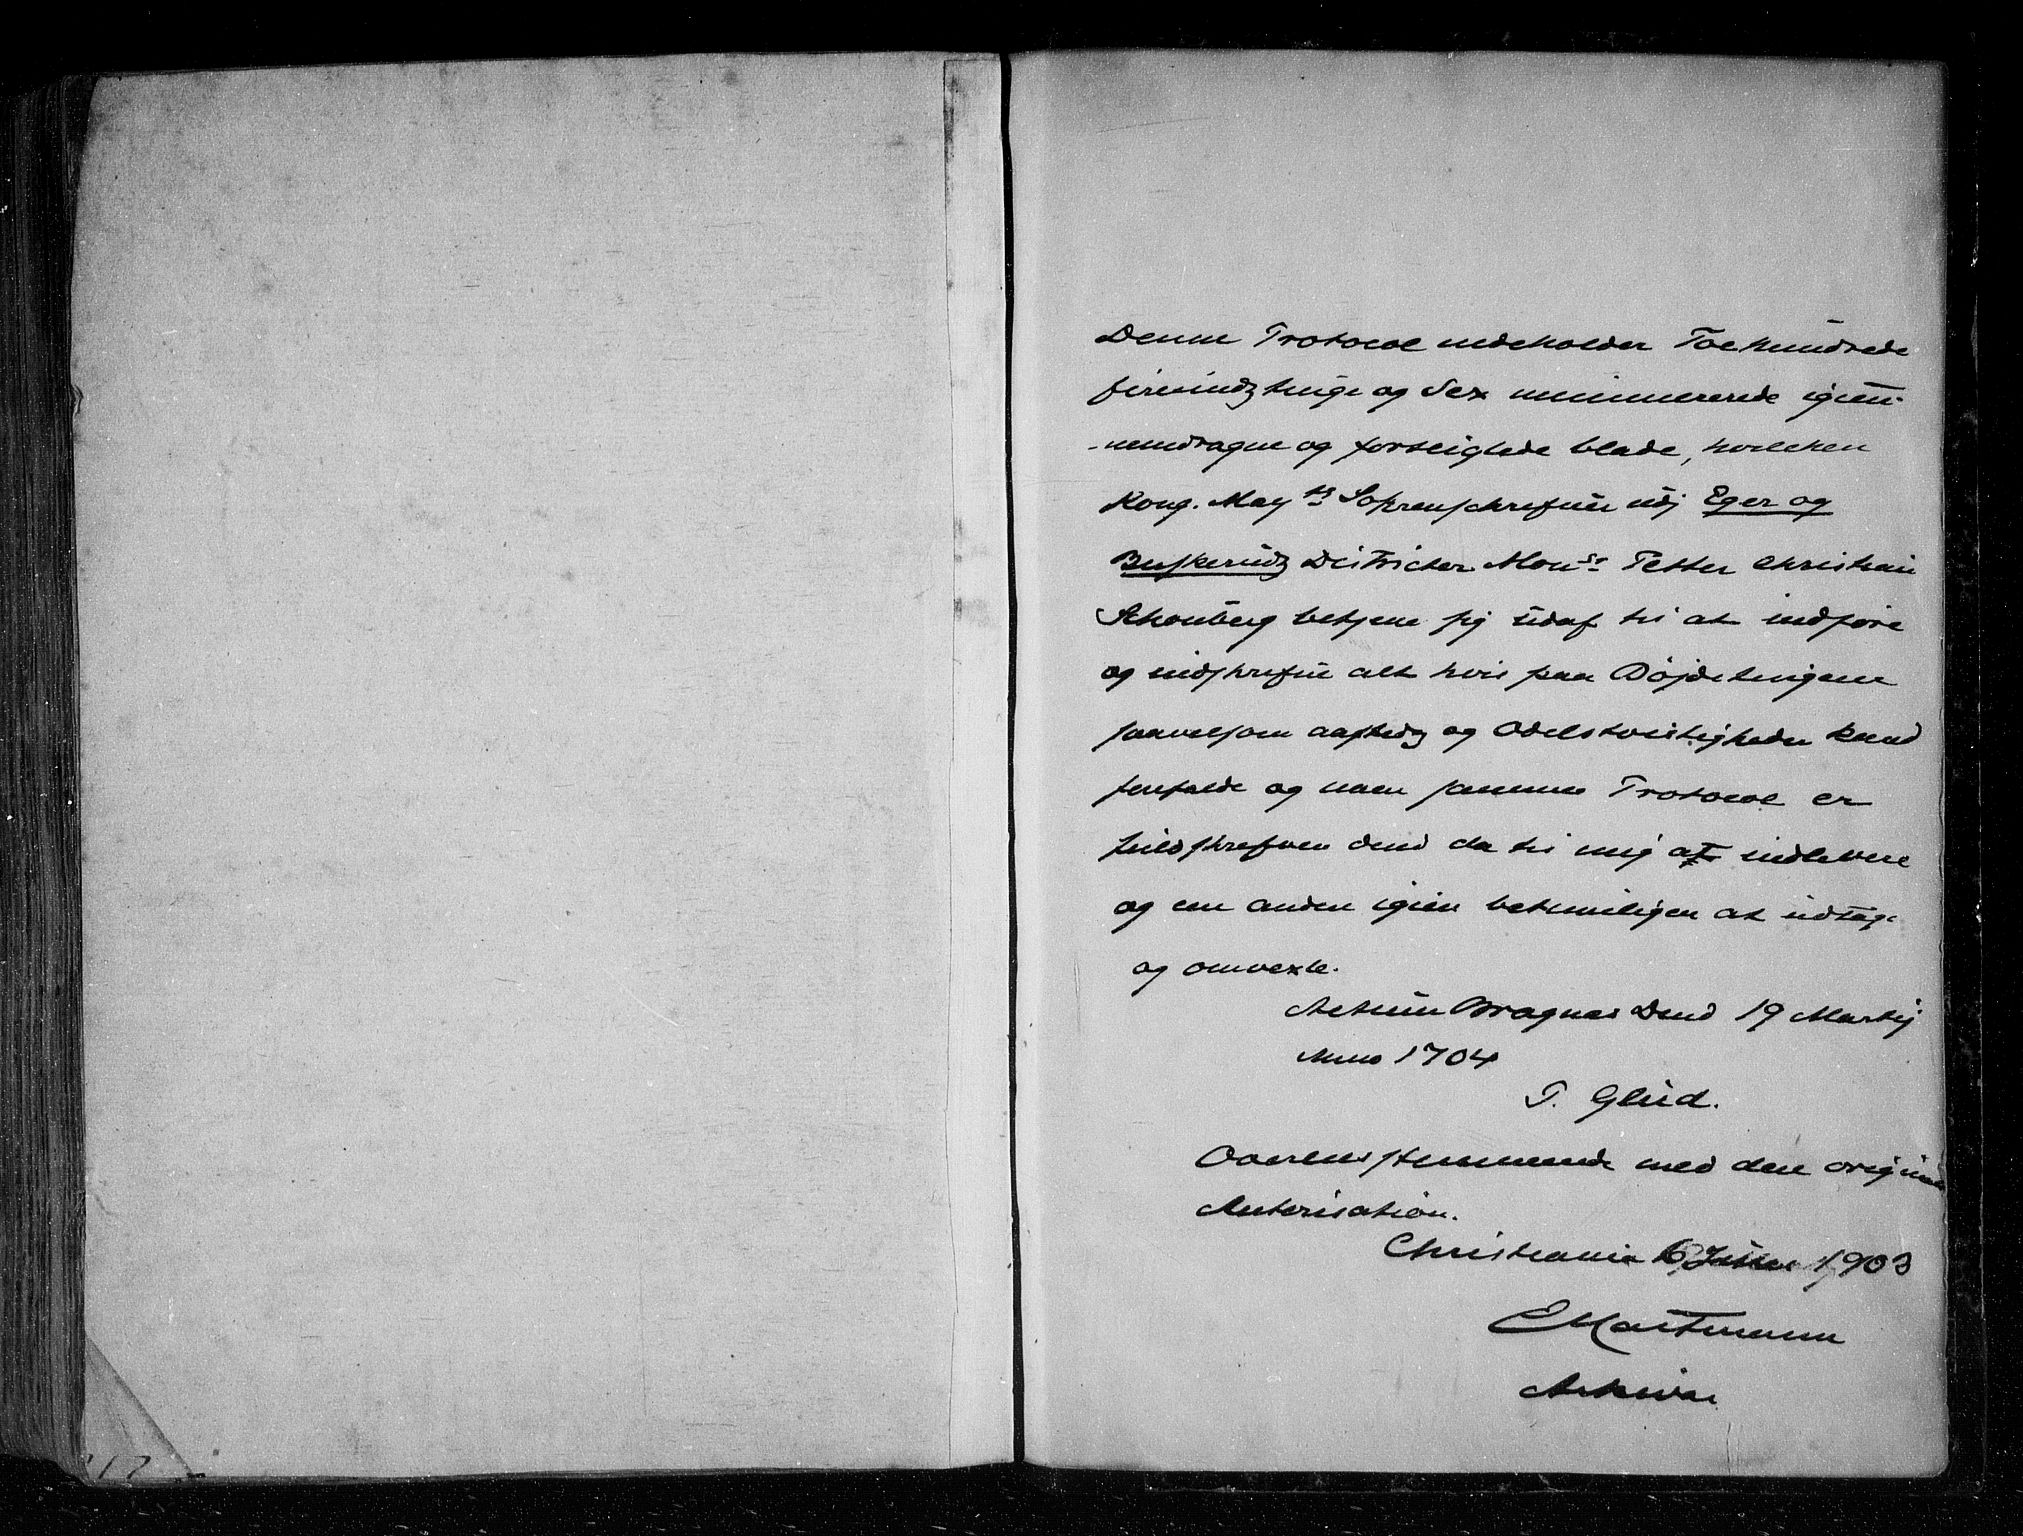 Denne Protocol indeholder Toehundrede
firesindztiuge og Sex nummererede igien-
-nemdragne og forseiglede blade, hvilchen
Kong. May ts Sorenschrefuer udj Eger og
Buskerudz Districter Mons.r Petter Christian
Schouberg betjene sig udaf til at indføre
og indskrefue alt hvis paa Bøjdetingene
saavelsom aastedz og Odelstvistigheder kand
forefalde og naar samme Protocol er
fuldskrefven dend da til mig at indlevere
og en anden igien betimeligen at udtage
og omvexle.
Actum Bragnes Dend 19 Martij
Anno 1704
T. Glud.
Overensstemmende med den originale
Autorisation.
Christiania 1903
E Hartmann
Arkivar